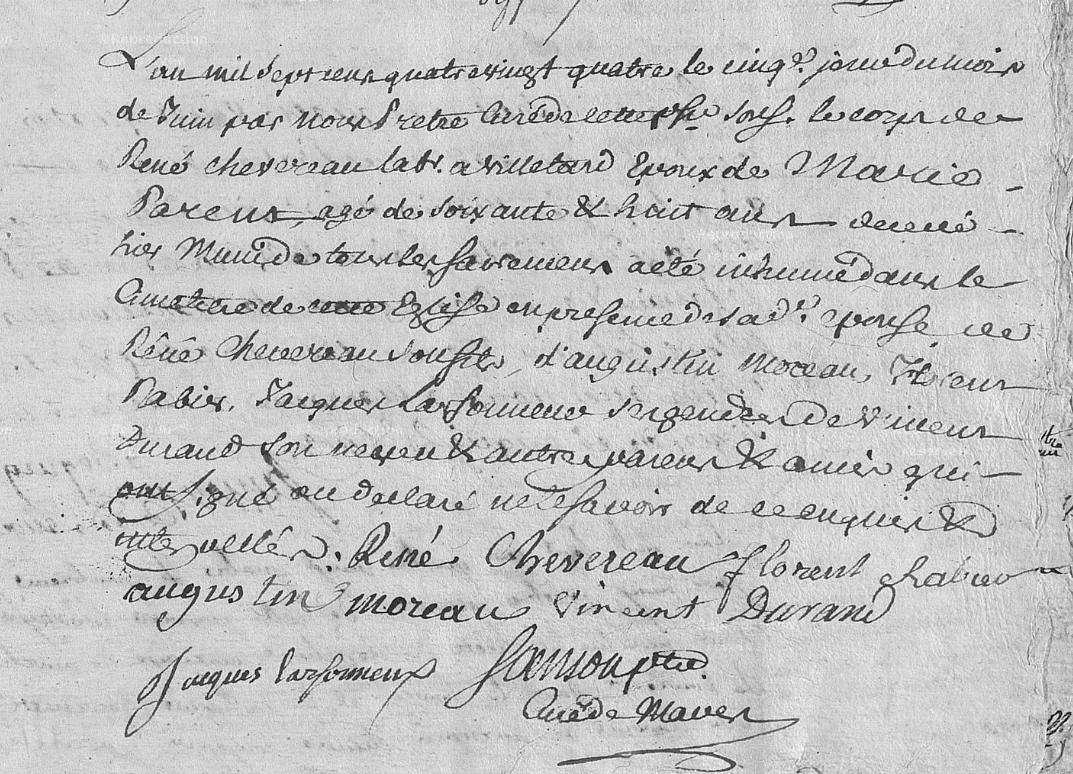 L'an mil sept cens quatrevingt quatre le cinq.e jour du mois
de Juin par nous Pretre Curé de cette psse souss. le corps de
René Chevereau labr. a Villetard Epoux de Marie
Parent, agé de soixante & huit ans decedé
hier Muni de tous les sacremens a eté inhumé dans le
Cimetiere de cette Eglise en presence de sa d.e epouse de
Réné Chevereau son fils, d'augustin Moreau, Florent
Rabier, Jacques Larsonneux ses gendres de Vincent
Durand son neveu & autres parens & amis qui
ont signé ou declaré ne le savoir de ce enquis &
interpellés. René Chevereau florent Rabier
augustin moreau Vincent Durand
Jacques larsonneux Sanson ptre
Curé de Maves